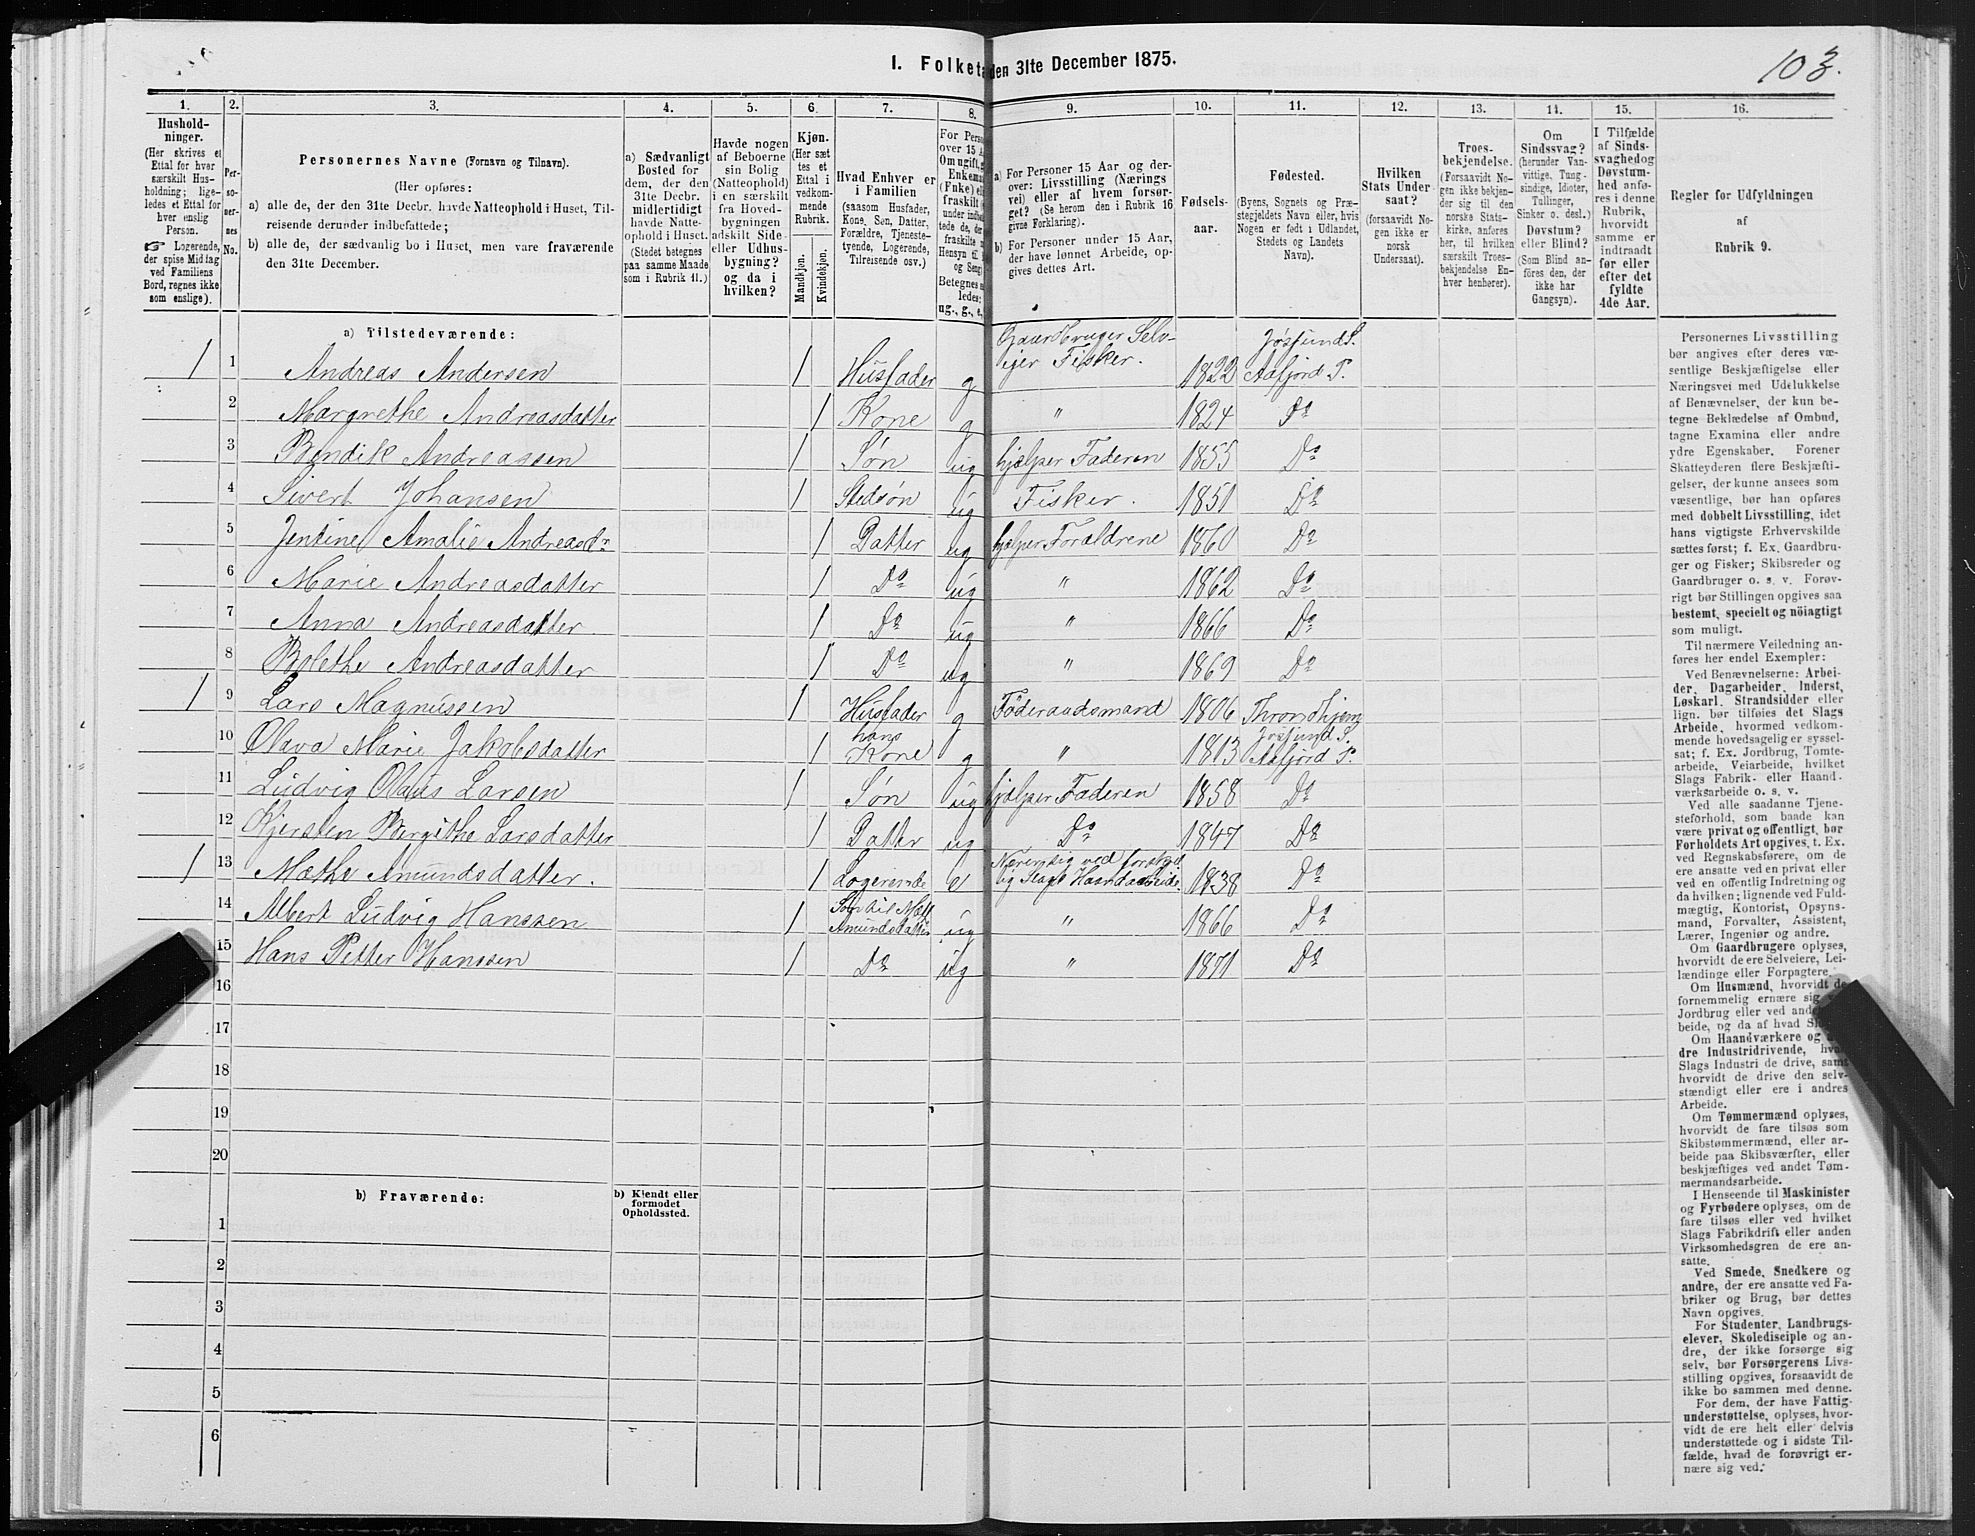 I. Folketæ den 31te December 1875.
103.
1. 2. 3. 4. 5. 6. 7. 8. 9. 10. 11. 12. 13. 14. 15. 16.
Hushold-
ninger.
(Her skrives et
Ettal for hver
særskilt Hus-
holdning; lige-
ledes et Ettal for
hver enslig
Person.
☞ Logerende,
der spise Middag
ved Familiens
Bord, regnes ikke
som enslige).
Per-
so-
ner-
nes
No.
Personernes Navne (Fornavn og Tilnavn).
(Her opføres:
a) alle de, der den 31te Decbr. havde Natteophold i Huset, Til-
reisende derunder indbefattede;
b) alle de, der sædvanlig bo i Huset, men vare fraværende
den 31te December.
a) Sædvanligt
Bosted for
dem, der den
31te Decbr.
midlertidigt
havde Natte-
ophold i Huset.
(Stedet betegnes
paa samme Maade
som i Rubrik 11.)
Havde nogen
af Beboerne
sin Bolig
(Natteophold)
i en særskilt
fra Hoved-
bygningen
adskilt Side-
eller Udhus-
bygning?
og da i
hvilken?
Kjøn.
(Her sæt
tes et
Ettal i
vedkom-
mende
Rubrik.
Mandkjøn.
Kvindekjøn.
Hvad Enhver er
i Familien
(saasom Husfader,
Kone, Søn, Datter,
Forældre, Tjeneste-
tyende, Logerende,
Tilreisende osv.)
For Pers
over 15 A
Om ugift,
Enkem
(Enke) el
fraskilt
under
tede de,
fraskilte
Hensyn til
og Seng
Betegnes
ledes:
ug., g., e,
a) For Personer 15 Aar og der-
over: Livsstilling (Nærings
vei) eller af hvem forsør-
get? (Se herom den i Rubrik 16
givne Forklaring).
b) For Personer under 15 Aar,
der have lønnet Arbeide, op-
gives dettes Art.
Fødsels-
aar.
Fødested.
(Byens, Sognets og Præ-
stegjeldets Navn eller, hvis
Nogen er født i Udlandet,
Stedets og Landets
Navn).
Hvilken
Stats Under-
saat?
(forsaavidt No-
gen ikke er
norsk
Undersaat).
Troes-
bekjendelse.
(Forsaavidt No-
gen ikke bekjen-
der sig til den
norske Stats-
kirke, anføres
her, til hvilken
særskilt Troes-
bekjendelse En-
hver henhører).
Om
Sindssvag?
(herunder Van-
vittige, Tung-
sindige, Idioter,
Tullinger,
Sinker o. desl.)
Døvstum?
eller Blind?
(Som Blind an-
føres den, der
ikke har
Gangsyn).
I Tilfælde
af Sinds-
svaghed og
Døvstum-
hed anfø-
res i denne
Rubrik,
hvorvidt
samme er
indtraadt
før eller
efter det
fyldte
4de Aar.
Regler for Udfyldningen
af
Rubrik 9.
a) Tilstedeværende:
1 1 Andreas Andersen 1 Husfader g Gaardbruger Selv-
eier Fisker. 1822 Jøssund S.
Aafjord P.
2 Margrethe Andreasdatter 1 Kone g " 1824 Do
3 Bendik Andreassen 1 Søn ug hjælper Faderen 1855 Do
4 Sivert Johansen 1 Stedsøn ug Fisker. 1851 Do
5 Jentine Amalie Andreasdr 1 Datter ug hjælper Forældrene 1860 Do
6 Marie Andreasdatter 1 Do ug " 1862 Do
7 Anna Andreasdatter. 1 Do ug " 1866 Do
8 Bolethe Andreasdatter 1 Do ug " 1869 Do
1 9 Lars Magnussen 1 Husfader g Føderaadsmand 1806 Throndhjem
10 Olava Marie Jakobsdatter 1 hans
Kone g " 1813 Jøssund S.
Aafjord P.
11 Ludvig Olaus Larsen 1 Søn ug hjælper Faderen 1858 Do
12 Kjersten Bergithe Larsdatter 1 Datter ug Do 1847 Do
1 13 Mæthe Amundsdatter. 1 Logerende e Nærer sig ved forskjel
ig Slags Haandarbeide. 1838 Do
14 Albert Ludvig Hanssen 1 Søn til Mæt
Amundsdatter ug " 1866 Do
15 Hans Petter Hanssen 1 Do ug " 1871 Do
16
17
18
19
20
b) Fraværende:
b) Kjendt eller
formodet
Opholdssted.
1
2
3
4
5
6
Personernes Livsstilling
bør angives efter deres væ-
sentlige Beskjæftigelse eller
Næringsvei med Udelukkelse
af Benævnelser, der kun be-
tegne Beklædelse af Ombud,
tagne Examina eller andre
ydre Egenskaber. Forener
Skatteyderen flere Beskjæfti-
gelser, der kunne ansees som
væsentlige, bør han opføres
med dobbelt Livsstilling, idet
hans vigtigste Erhvervskilde
sættes først; f. Ex. Gaardbru-
ger og Fisker; Skibsreder og
Gaardbruger o. s. v. Forøv-
rigt bør Stillingen opgives saa
bestemt, specielt og nöiagtigt
som muligt.
Til nærmere Veiledning an-
føres her endel Exempler:
Ved Benævnelserne: Arbei-
der, Dagarbeider, Inderst,
Løskarl, Strandsidder eller
lign. bør tilføies det Slags
Arbeide, hvormed vedkom-
mende hovedsagelig er syssel-
sat; f. Ex. Jordbrug, Tomte-
arbeide, Veiarbeide, hvilket
Slags Fabrik- eller Haand-
værksarbeide o. s. v.
Ved alle saadanne Tjene-
steforhold, som baade kan
være privat og offentligt, bør
Forholdets Art opgives, t. Ex.
ved Regnskabsførere, om de
ere ansatte ved en privat eller
ved en offentlig Indretning og
da hvilken; lignende ved Fuld-
mægtig, Kontorist, Opsyns-
mand, Forvalter, Assistent,
Lærer, Ingeniør og andre.
Om Gaardbrugere oplyses,
hvorvidt de ere Selveiere, Lei-
lændinge eller Forpagtere.
Om Husmænd, hvorvidt de
fornemmelig ernære sig
Jordbrug eller ved
beide, og da af hvad
Om Haandværkere og
dre Industridrivende,
Slags Industri de drive, samt
hvorvidt de drive den selv-
stændigt eller ere i andres
Arbeide.
Om Tømmermænd oplyses,
hvorvidt de fare tilsøs som
Skibstømmermænd, eller ar-
beide paa Skibsværfter, eller
beskjæftiges ved andet Tøm-
mermandsarbeide.
I Henseende til Maskinister
og Fyrbødere oplyses, om de
fare tilsøs eller ved hvilket
Slags Fabrikdrift eller anden
Virksomhedsgren de ere an-
satte.
Ved Smede, Snedkere og
andre, der ere ansatte ved Fa-
briker og Brug, bør dettes
Navn opgives.
For Studenter, Landbrugs-
elever, Skoledisciple og an-
dre, der ikke forsørge sig
selv, bør Forsørgerens Livs-
stilling opgives, forsaavidt de
ikke bo sammen med denne.
For dem, der have Fattig-
understøttelse, oplyses, hvor-
vidt de ere helt eller delvis
understøttede og i sidste Til-
fælde, hvad de forøvrigt er-
nære sig ved.